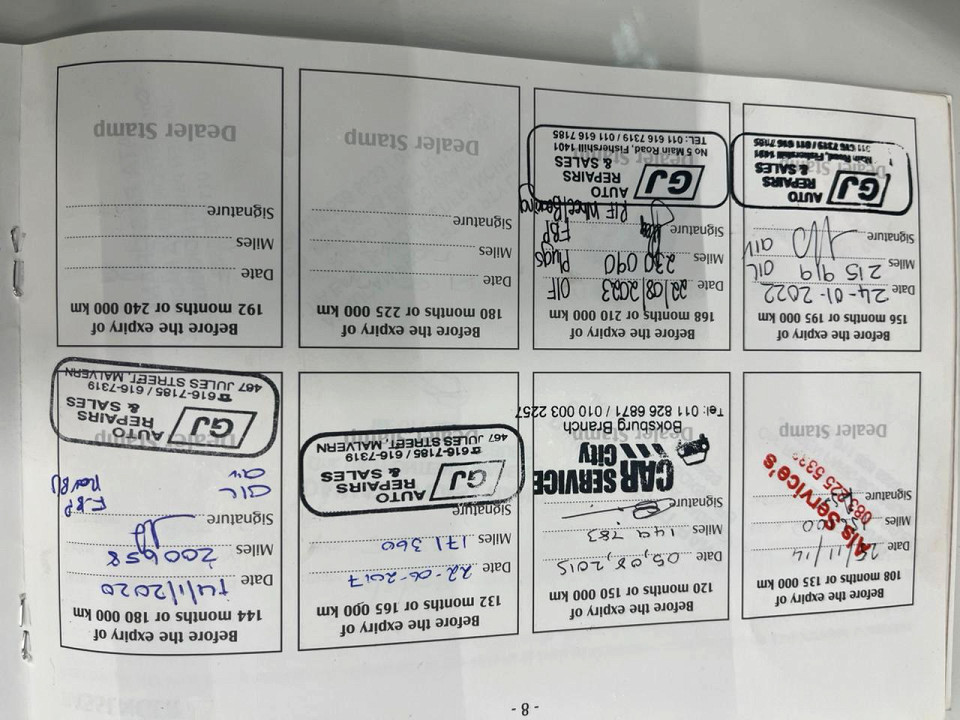 - 8 -
Before the expiry of
108 months or 135 000 km
Date 25/11/14
Miles
Signature
A/s Service's
Dealer Stamp
Before the expiry of
120 months or 150 000 km
Date 05,08,2015
Miles 149 783
Signature
CAR SERVICE
City
Dealer Stamp
Boksburg Branch
Tel: 011 826 6871 / 010 003 2257
Before the expiry of
132 months or 165 000 km
Date 22-06-2017
Miles 171 360
Signature
GJ AUTO
REPAIRS
& SALES
☎616-7185 / 616-7319
467 JULES STREET, MALVERN
Before the expiry of
144 months or 180 000 km
Date 14/1/2020
Miles 200658
Signature
OIL
air
GJ AUTO
REPAIRS
& SALES
☎616-7185 / 616-7319
467 JULES STREET, MALVERN
Before the expiry of
156 months or 195 000 km
Date 24-01-2022
Miles 215 919 OIL
Signature air
GJ AUTO
REPAIRS
& SALES
Main Road, Fishershill 1401
011 616 7319 / 011 616 7185
Before the expiry of
168 months or 210 000 km
Date 22/08/2023 O/F
Miles 230 090 Plugs
Signature FBP
R/F Wheel Bearing
GJ AUTO
REPAIRS
& SALES
No 5 Main Road, Fishershill 1401
TEL.: 011 616 7319 / 011 616 7185
Before the expiry of
180 months or 225 000 km
Date
Miles
Signature
Dealer Stamp
Before the expiry of
192 months or 240 000 km
Date
Miles
Signature
Dealer Stamp